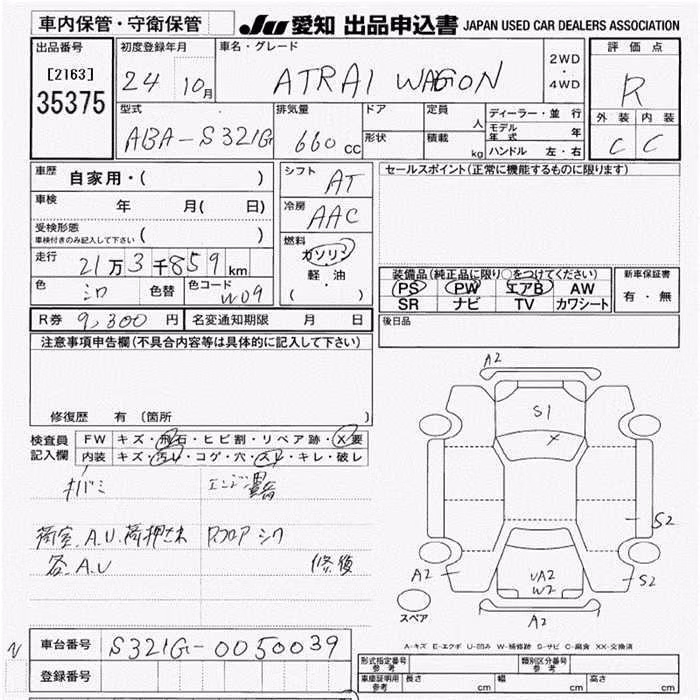 車内保管・守衛保管
JU 愛知 出品申込書 JAPAN USED CAR DEALERS ASSOCIATION
出品番号
[2163]
35375
初度登録年月
24 10月
車名・グレード
ATRAI WAGON
2WD
・
4WD
評価点
R
外装 内装
C C
型式
ABA-S321G
排気量
660 cc
ドア
形状
定員
人
積載
kg
ディーラー・並行
モデル年式 年
ハンドル 左・右
車歴
自家用・( )
車検
年 月( 日)
受検形態
車検付きのみ記入して下さい ( )
走行
21万3千859km
色
シロ
色替
色コード
W09
シフト
AT
冷房
AAC
燃料
ガソリン
軽・油
( )
セールスポイント(正常に機能するものに限ります)
装備品(純正品に限り○をつけてください)
PS PW エアB AW
SR ナビ TV カワシート
新車保証書
有・無
R券 9,300円
名変通知期限 月 日
後日品
注意事項申告欄(不具合内容等は具体的に記入して下さい)
修復歴 有(箇所 )
検査員
記入欄
FW キズ・飛石・ヒビ割・リペア跡・X要
内装 キズ・汚レ・コゲ・穴・スレ・キレ・破レ
キバミ
荷室.A.U.荷押サエ
各.A.U
修復
A2
S1
S2
A2
S2
UA2
W2
A2
スペア
A-キズ E-エクボ U-凹み W-補修跡 S-サビ C-腐食 XX-交換済
車台番号
S321G-0050039
登録番号
型式指定番号
参考
類別区分番号
参考
車庫証明用
参考
長さ cm
幅 cm
高さ cm